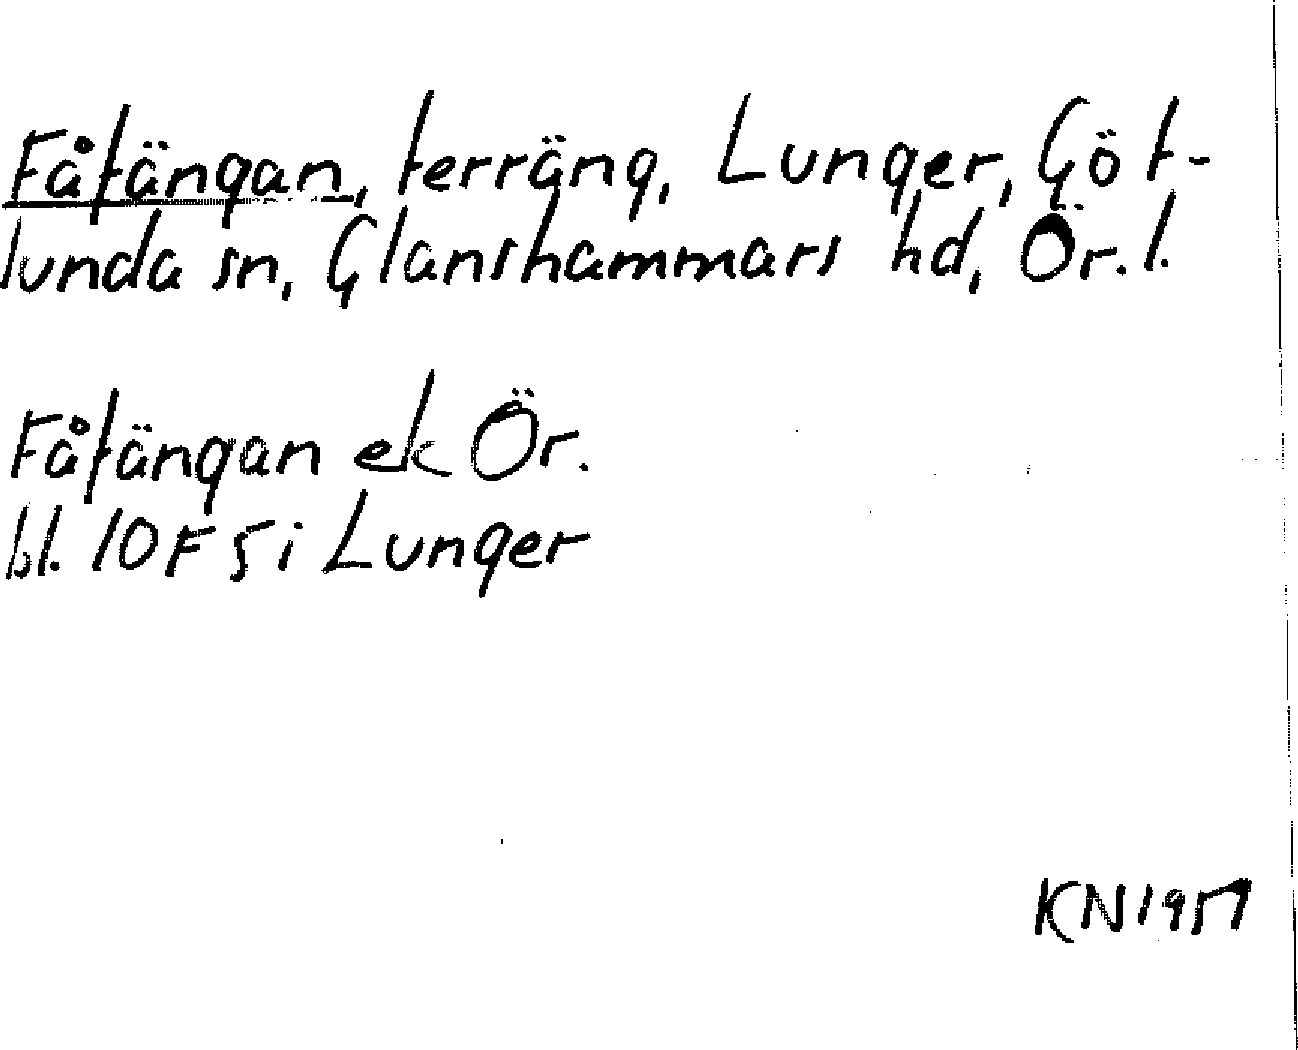 Fåfängan, terräng, Lunger, Göt-
lunda sn, Glanshammars hd, Ör. l.
Fåfängan ek Ör.
bl. 10F 5i Lunger
KN 1957